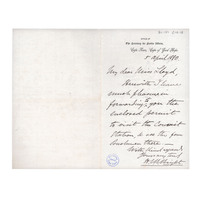 The Secretary for Native Affairs,
Cape Town, Cape of Good Hope
1st April 1890.
My dear Miss Lloyd,
Herewith I have
much pleasure in
forwarding to you the
enclosed permit
to visit the Convict
Station, & see the few
Bushmen there —
With kind regards
Yours very truly